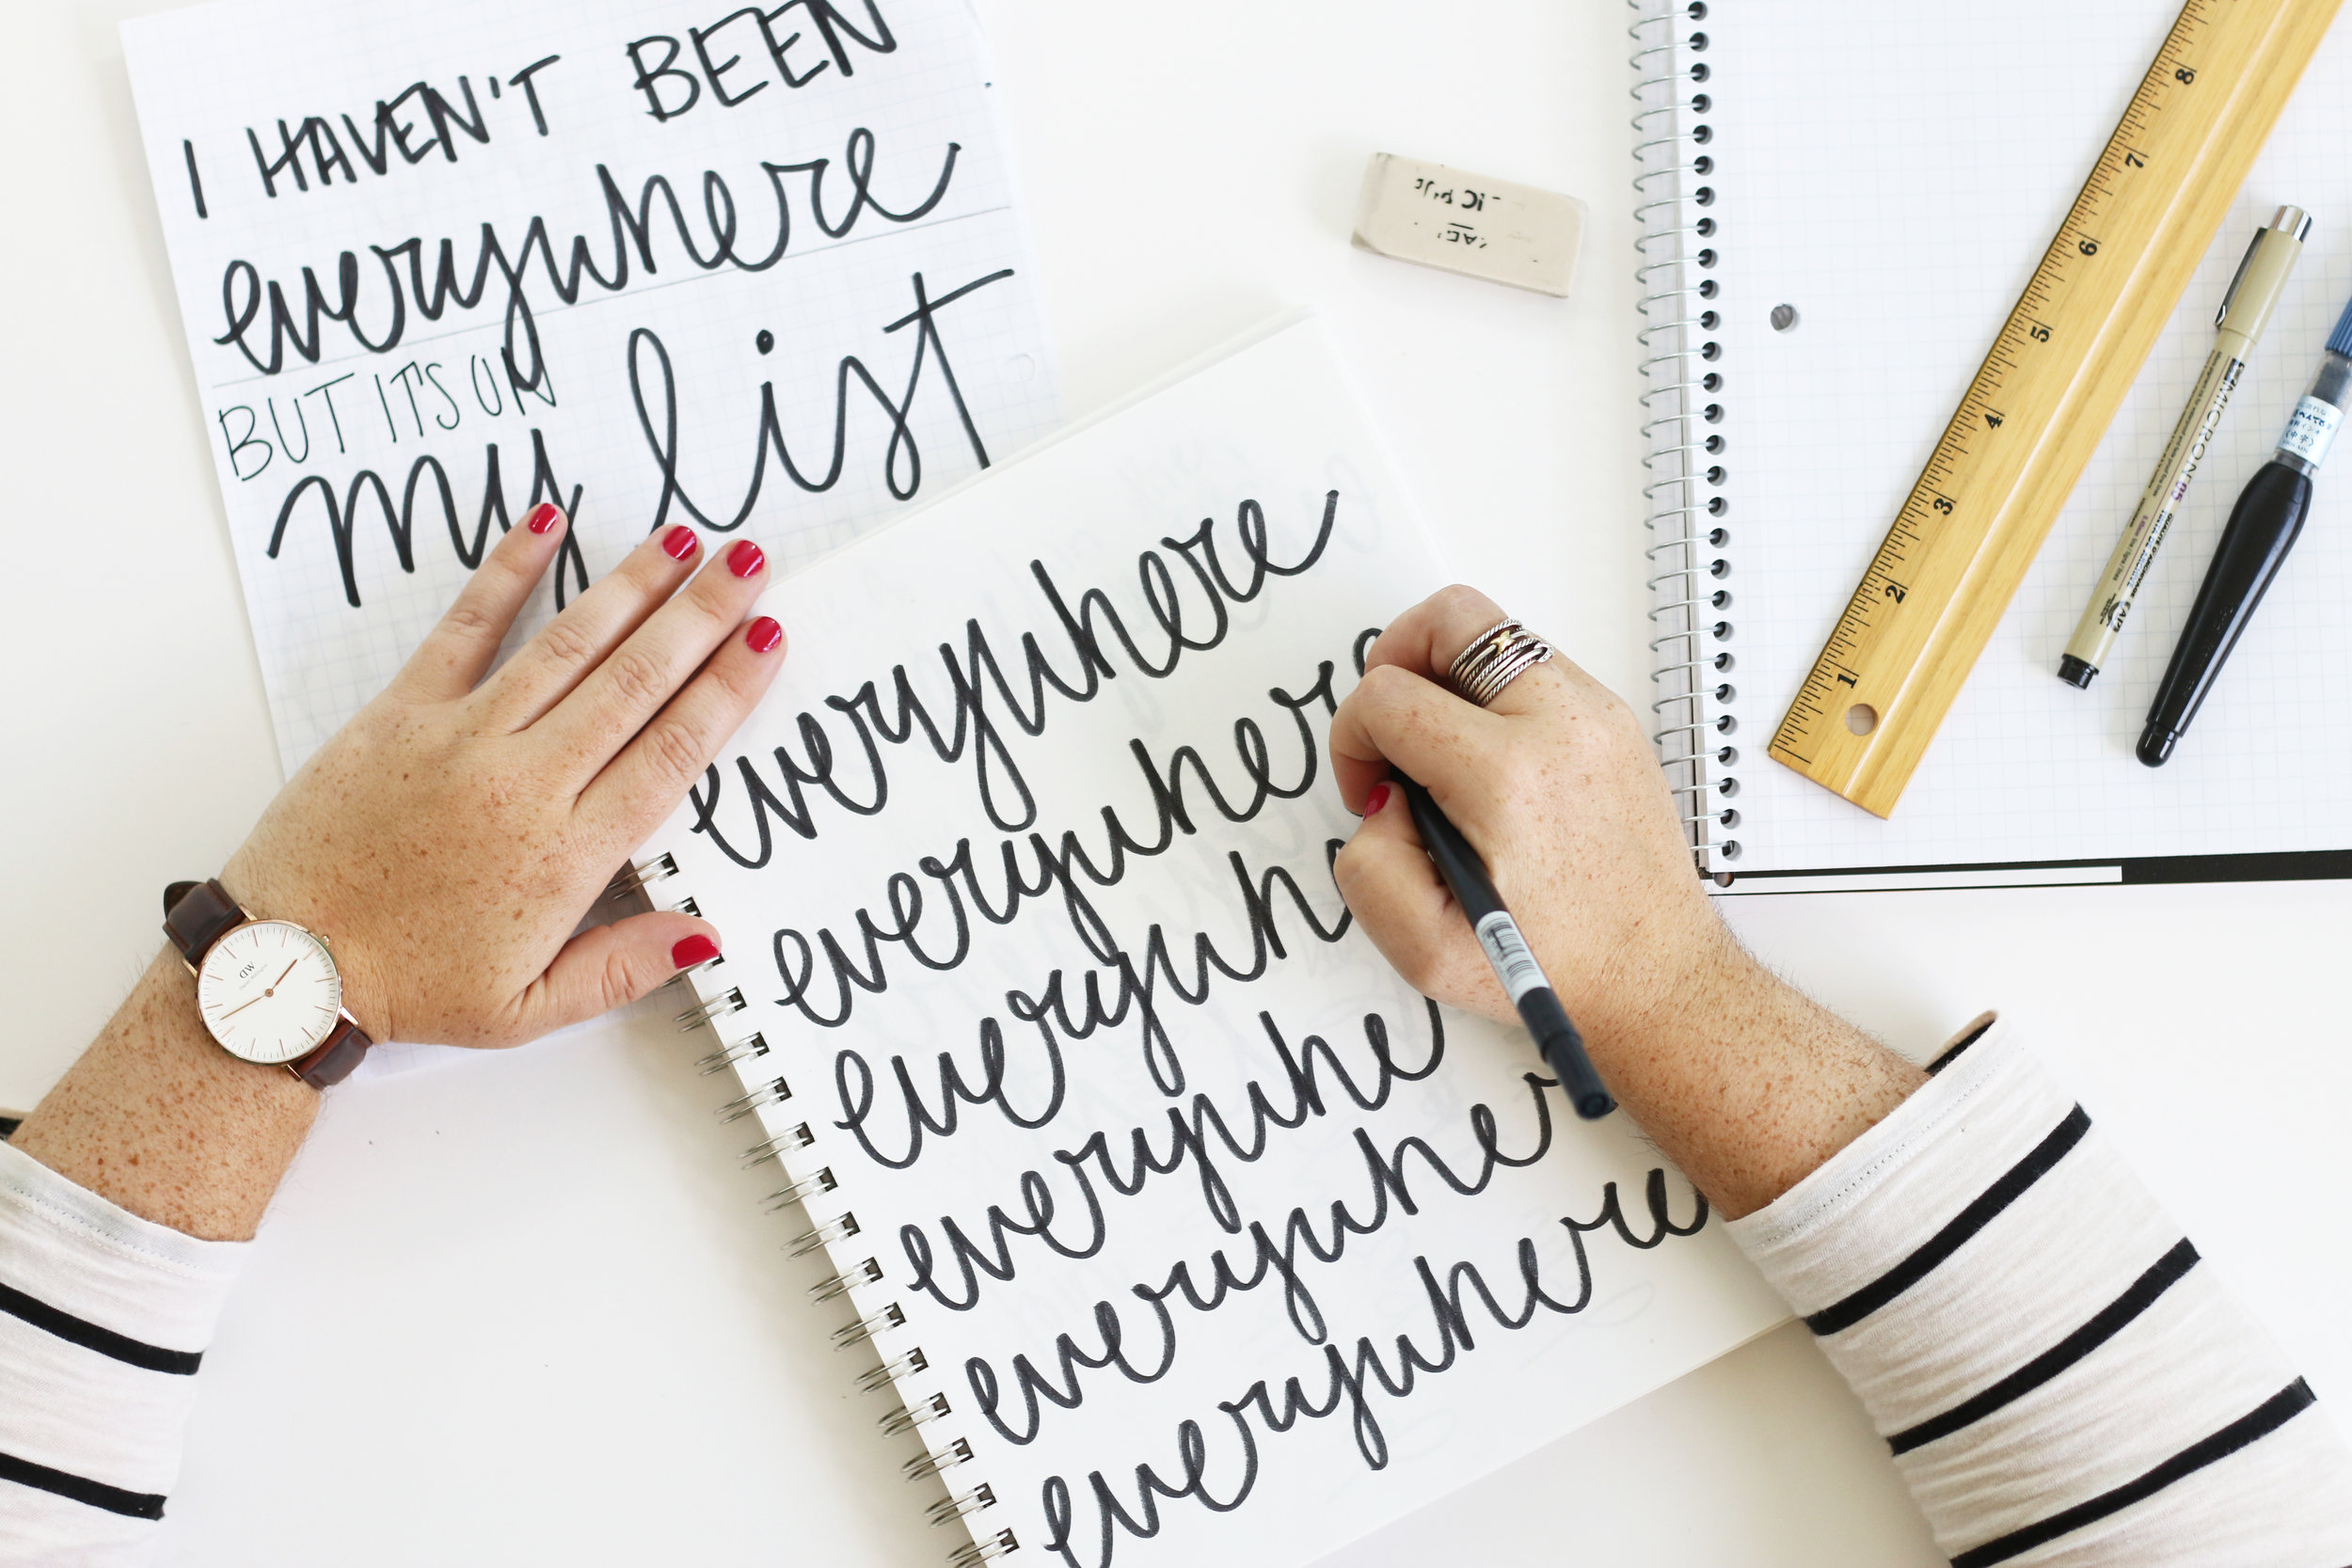 I HAVEN'T BEEN
everywhere
BUT IT'S ON
my list
everywhere
everywhere
everywhe
everywhe
everywher
everywhere
8
7
6
5
4
3
2
1
MICRON 05
DW